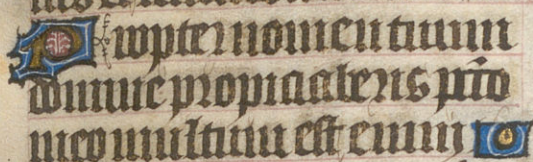 Propter nomen tuum
domine propiciaberis pctō
meo multum est enim Q